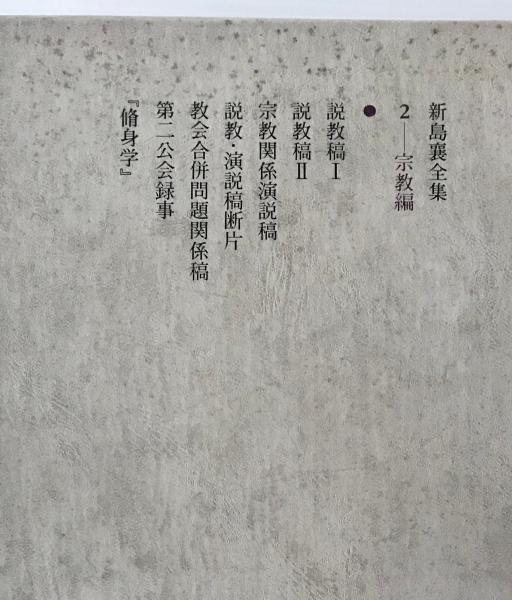 新島襄全集
2──宗教編
●
説教稿Ⅰ
説教稿Ⅱ
宗教関係演説稿
説教・演説稿断片
教会合併問題関係稿
第二公会録事
『脩身学』